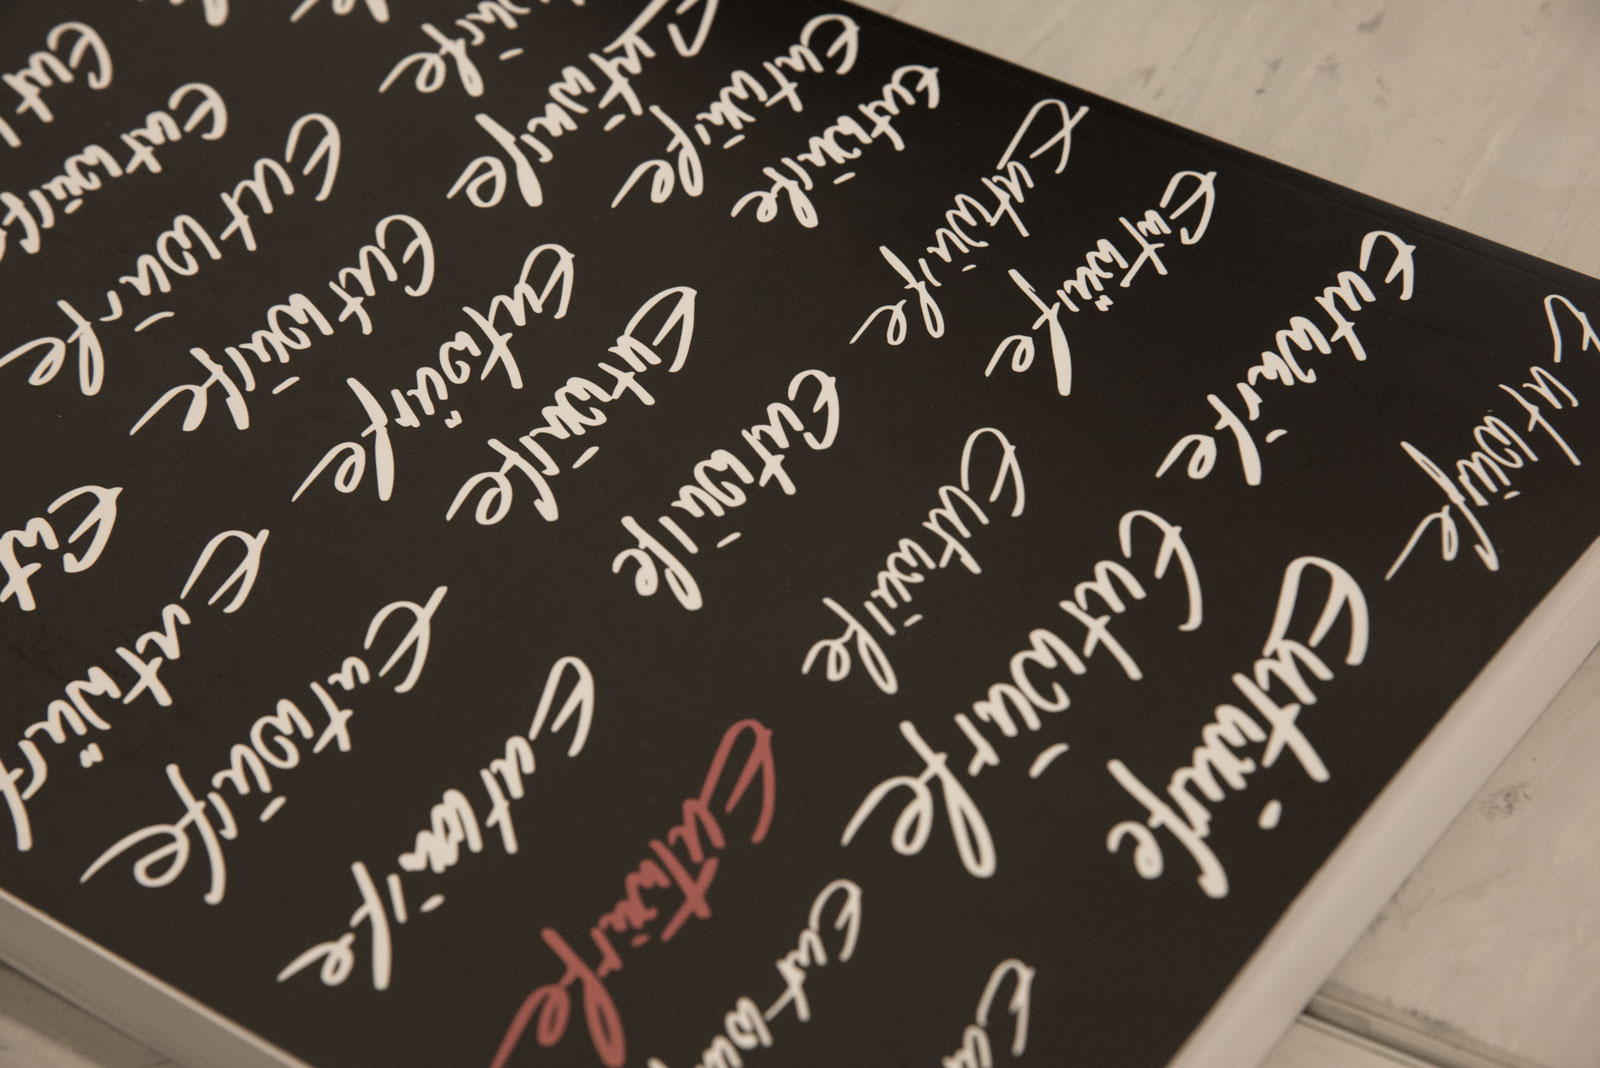 würfe
Entwürfe
Entwürfe
Entwürfe
Entwürfe
Entwürfe
Entwürfe
Entwürfe
Ent
Entwürf
Entwürfe
Entwürfe
Entwürfe
Entwürfe
Entwürfe
Entwürfe
Entwürfe
Entwürfe
Ent
Entwürf
Entwürfe
Entwürfe
Entwürfe
Entwü
En